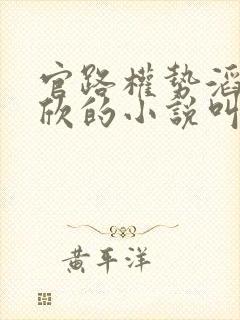 官路權勢滔
欣的小說叫
黃平洋